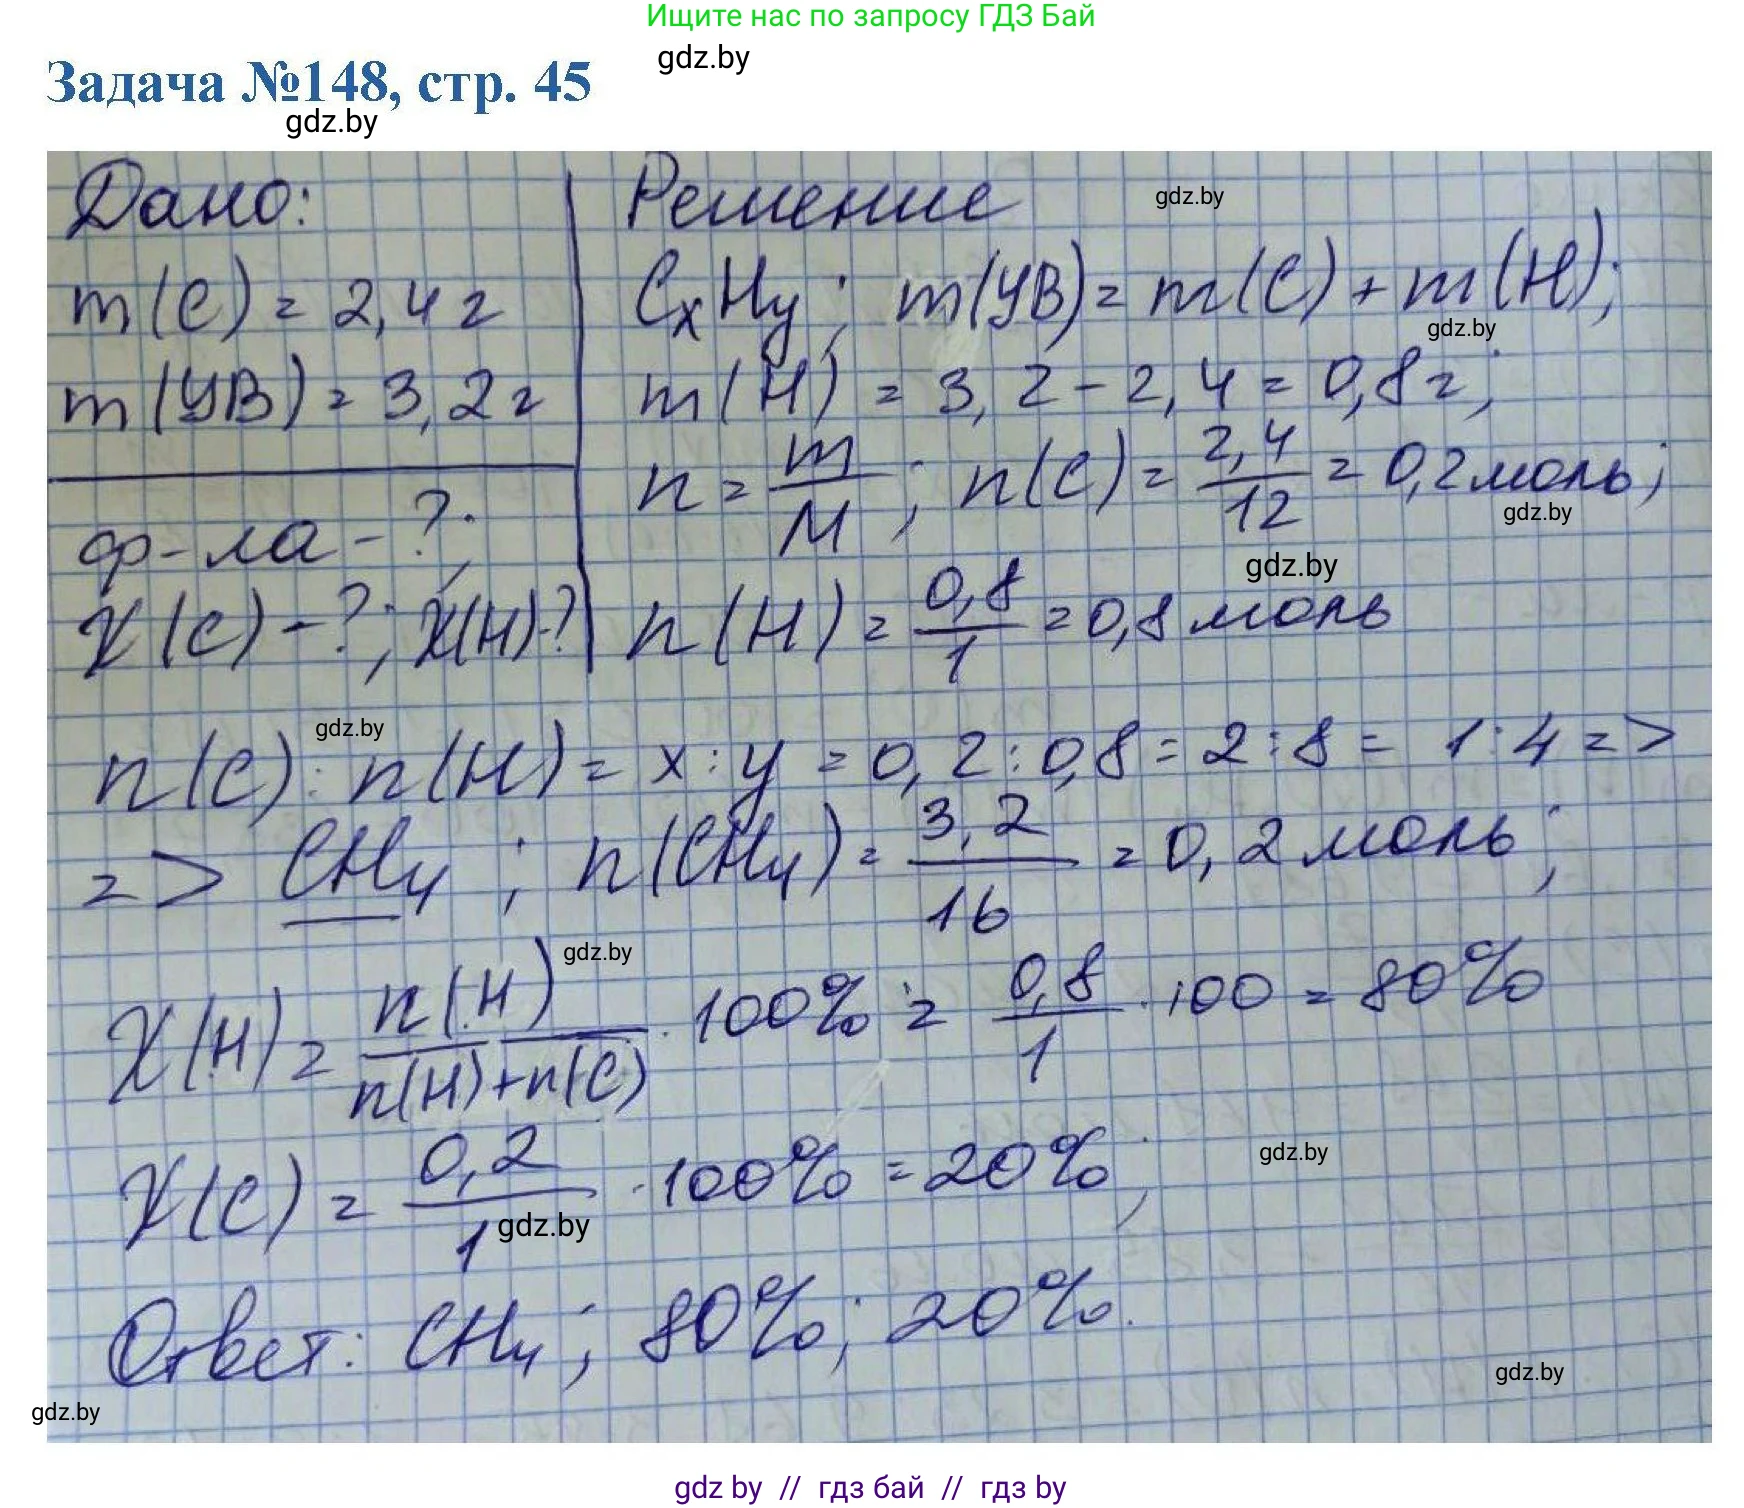 Ищите нас по запросу ГДЗ Бай
gdz.by
Задача №148, стр. 45
gdz.by
Дано:
m(C) = 2,4 г
m(УВ) = 3,2 г
ф-ла - ?;
χ(C) - ?; χ(H) - ?
Решение
gdz.by
CxHy; m(УВ) = m(C) + m(H);
gdz.by
m(H) = 3,2 - 2,4 = 0,8 г;
n = m/M; n(C) = 2,4/12 = 0,2 моль;
gdz.by
gdz.by
n(H) = 0,8/1 = 0,8 моль
gdz.by
n(C) : n(H) = x : y = 0,2 : 0,8 = 2 : 8 = 1 : 4 =>
=> CH4; n(CH4) = 3,2/16 = 0,2 моль;
gdz.by
χ(H) = n(H)/(n(H)+n(C)) · 100% = 0,8/1 · 100 = 80%
gdz.by
χ(C) = 0,2/1 · 100% = 20%;
gdz.by
Ответ: CH4; 80%; 20%.
gdz.by
gdz.by
gdz by // гдз бай // gdz by